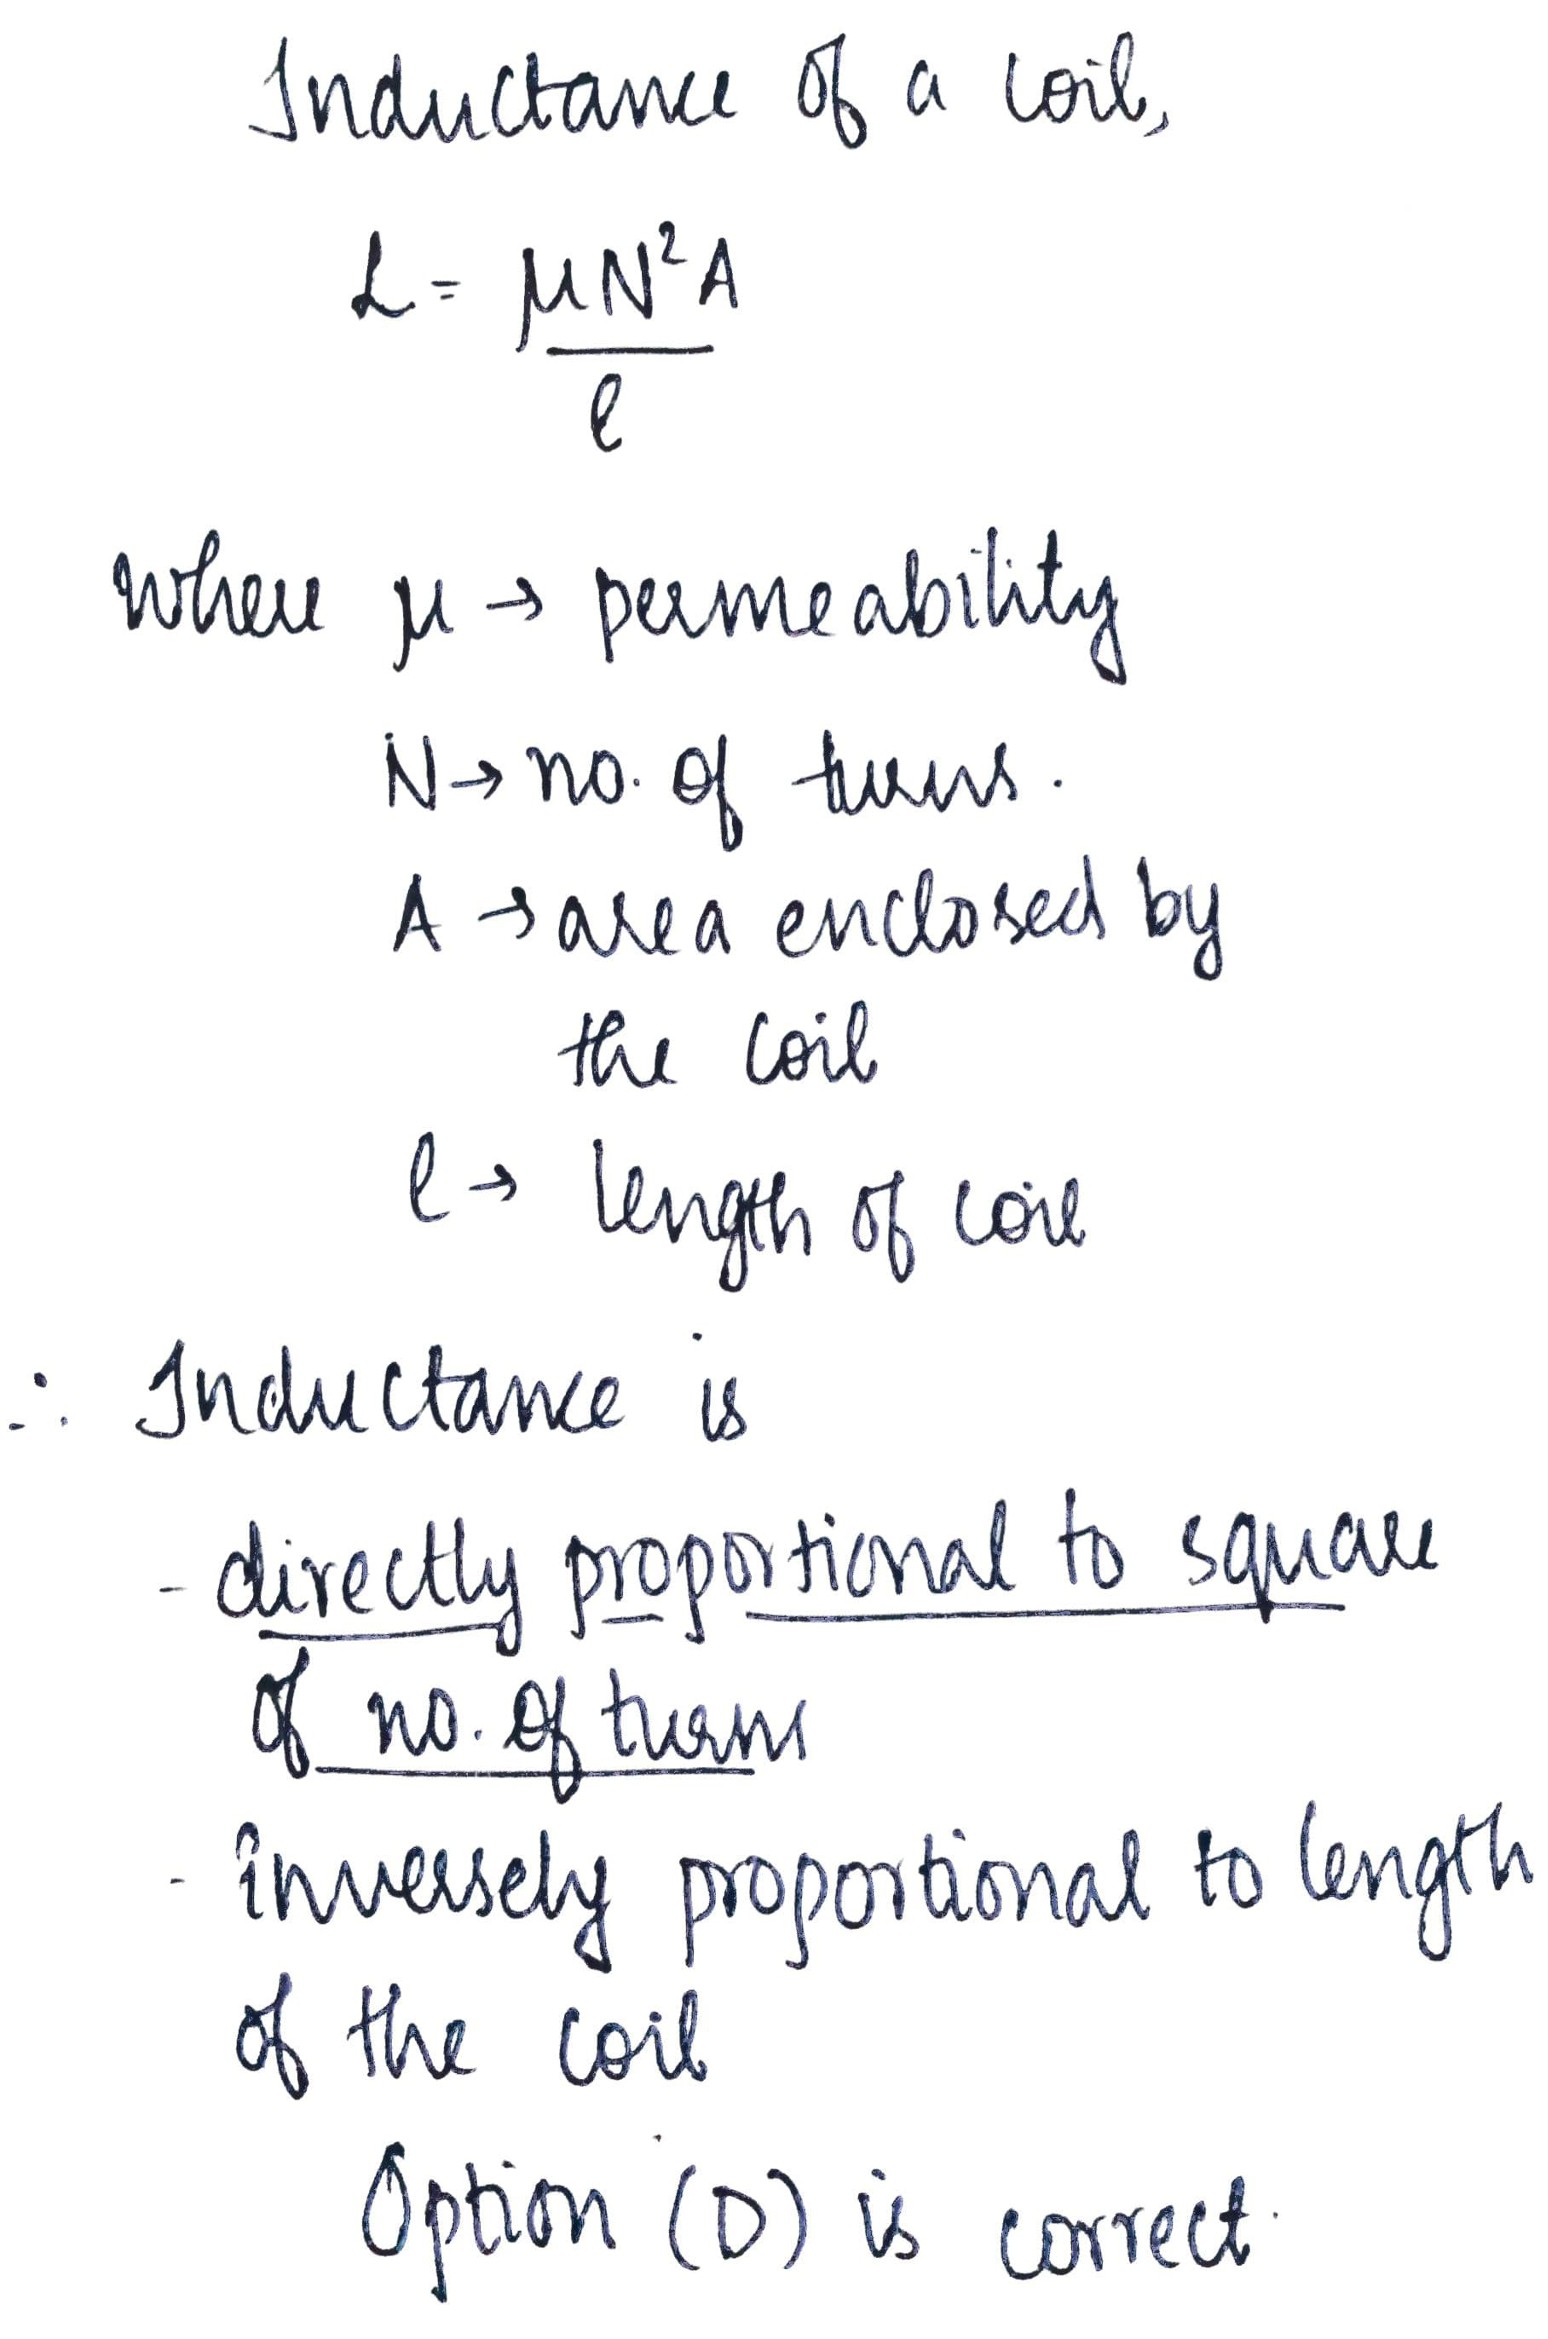 Inductance of a coil,
L = μN²A
l
Where μ → permeability
N → no. of turns.
A → area enclosed by
the coil
l → length of coil
∴ Inductance is
- directly proportional to square
of no. of turns
- inversely proportional to length
of the coil
Option (D) is correct.